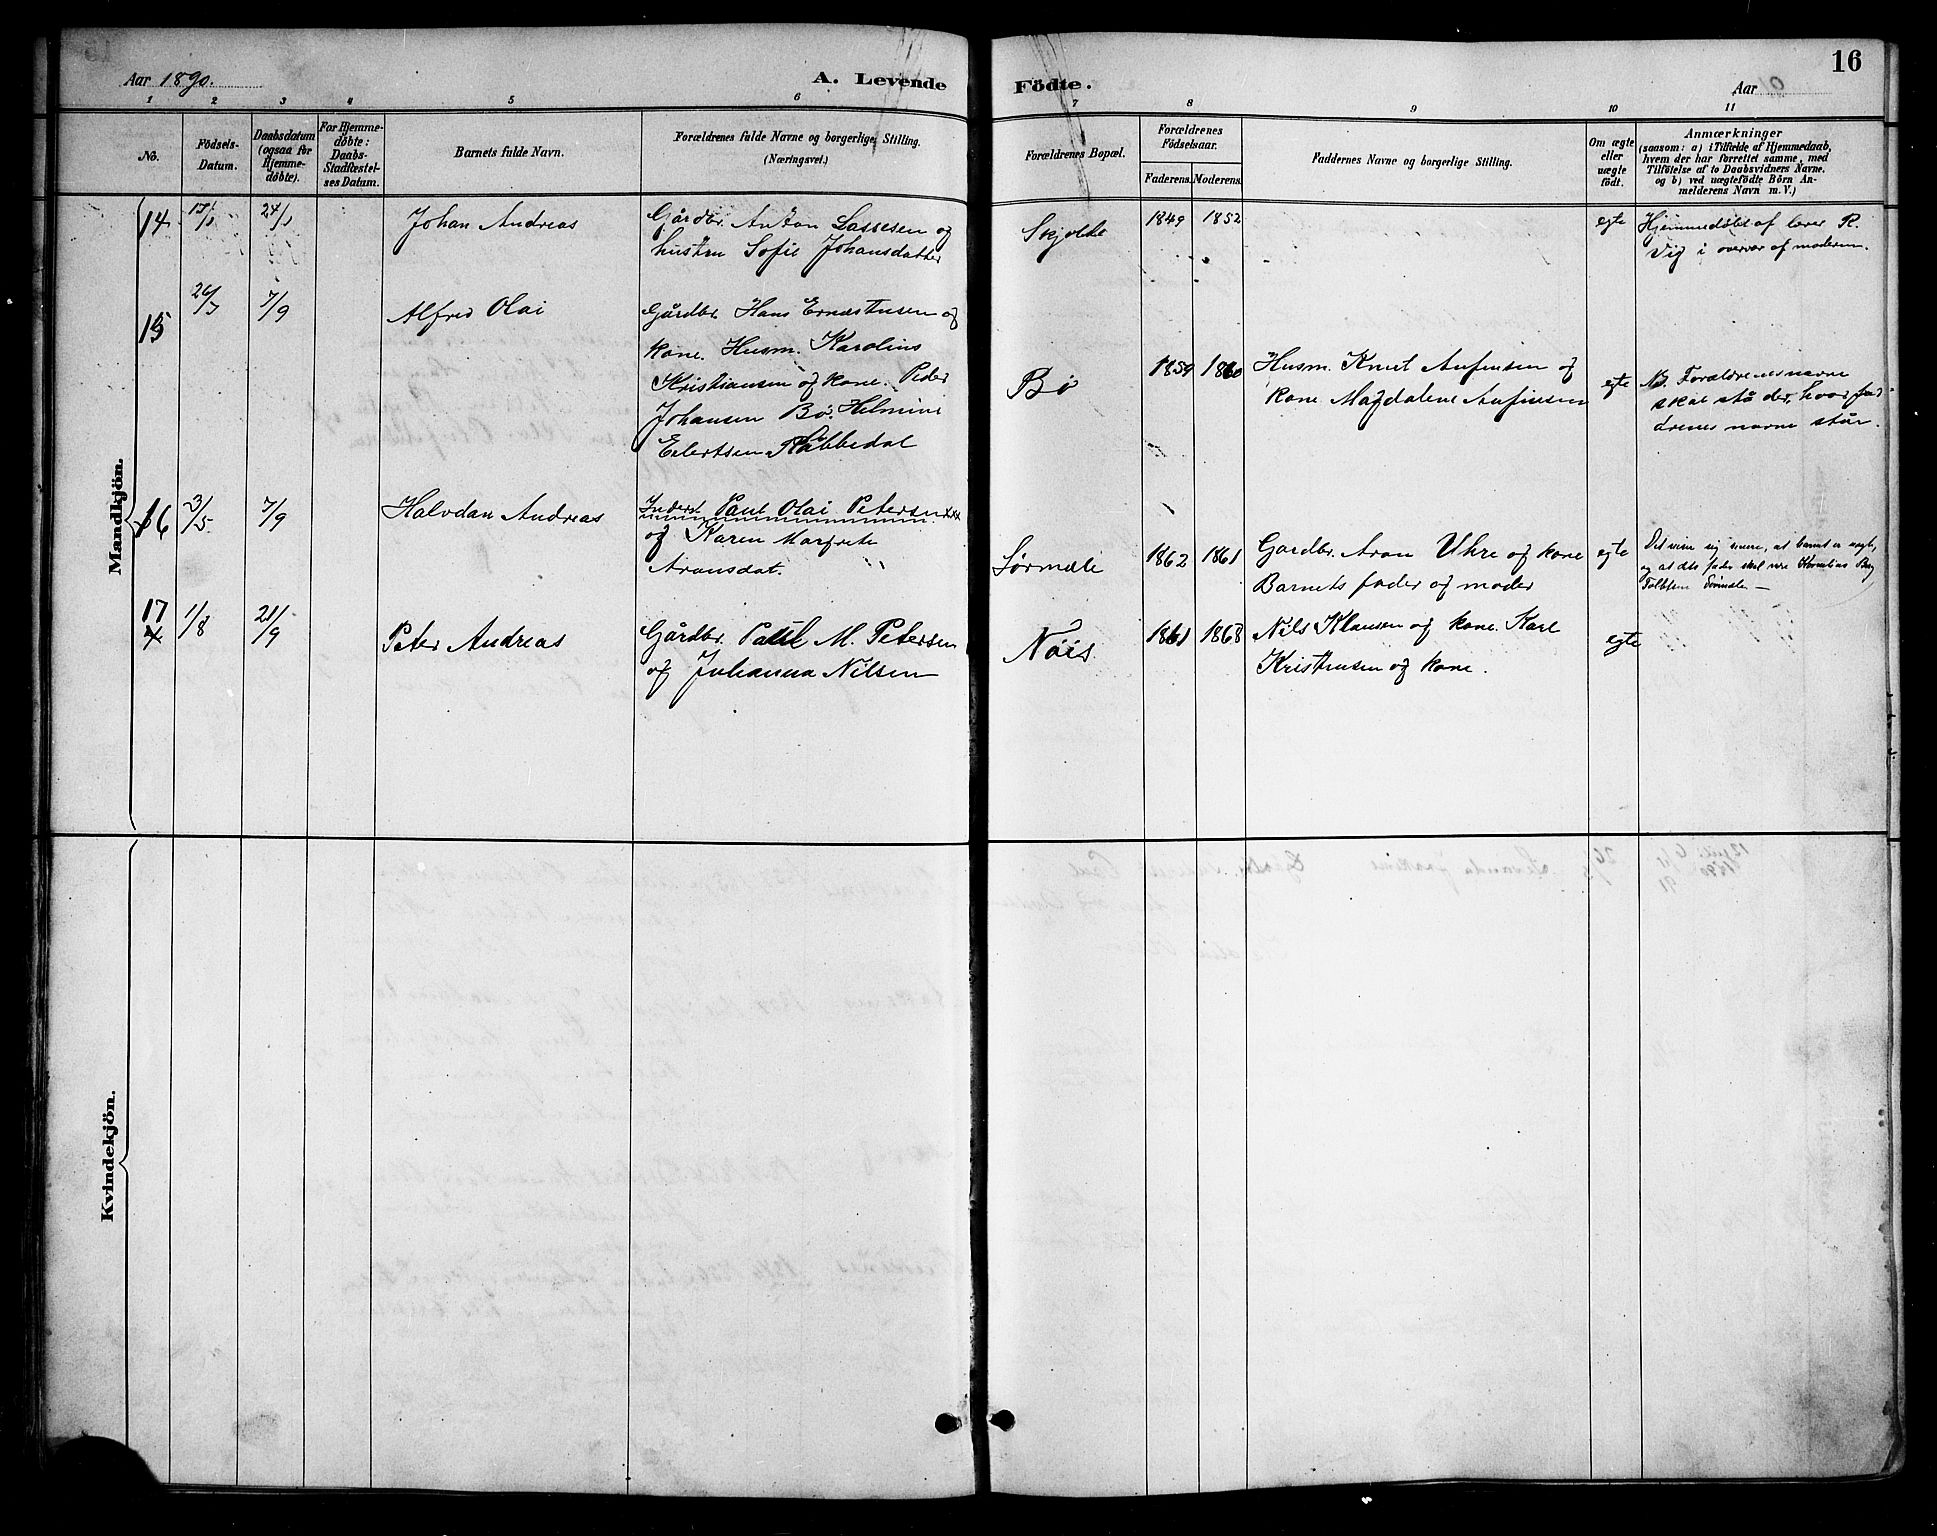 16
Aar 1890.
A. Levende
Födte.
Aar
1 2 3 4 5 6 7 8 9 10 11
No.
Födsels-
Datum.
Daabsdatum
(ogsaa for
Hjemme-
döbte).
For Hjemme-
döbte:
Daabs-
Stadfæstel-
ses Datum.
Barnets fulde Navn.
Forældrenes fulde Navne og borgerlige Stilling.
(Næringsvei.)
Forældrenes Bopæl.
Forældrenes
Födselsaar.
Faderens.
Moderens.
Faddernes Navne og borgerlige Stilling.
Om ægte
eller
uægte
födt.
Anmærkninger
(saasom: a) i Tilfælde af Hjemmedaab,
hvem der har forrettet samme, med
Tilföielse af to Daabsvidners Navne.
og b) ved uægtefödte Börn An-
melderens Navn m. V.)
Mandkjön.
14 24/1 Johan Andreas
Gårdbr. Anton Lassesen og
hustru Sofie Johansdatter
Skjolde 1849 1852 egte
Hjemmedøbt af lærer R.
Vig i overvær af moderen.
15 26/7 7/9 Alfred Olai
Gårdbr. Hans Ernestusen og
kone. Husm. Karolius
Kristiansen og kone. Peder
Johansen Bø. Helmine
Eilertsen Råbbedal
Bø 1859 1860
Husm. Knut Anfinsen og
kone Magdalene Anfinsen
egte
NB. Forældrenes navne
skal stå der, hvor fad-
drenes navne står.
16 3/5 7/9 Halvdan Andreas
Inderst Paul Olai Petersen
og Karen Margrete
Aronsdat.
Sørmæle 1862 1861
Gardbr. Aron Uhre og kone
Barnets fader og moder
egte
Det viser sig senere, at barnet er uægte,
og at dets fader skal være Kornelius Berg
17 1/8 21/9 Peter Andreas
Gårdbr. Paul M. Petersen
og Julianna Nilsen
Nöis 1861 1868
Nils Klausen og kone. Karl
Kristensen og kone.
egte
Kvindekjön.